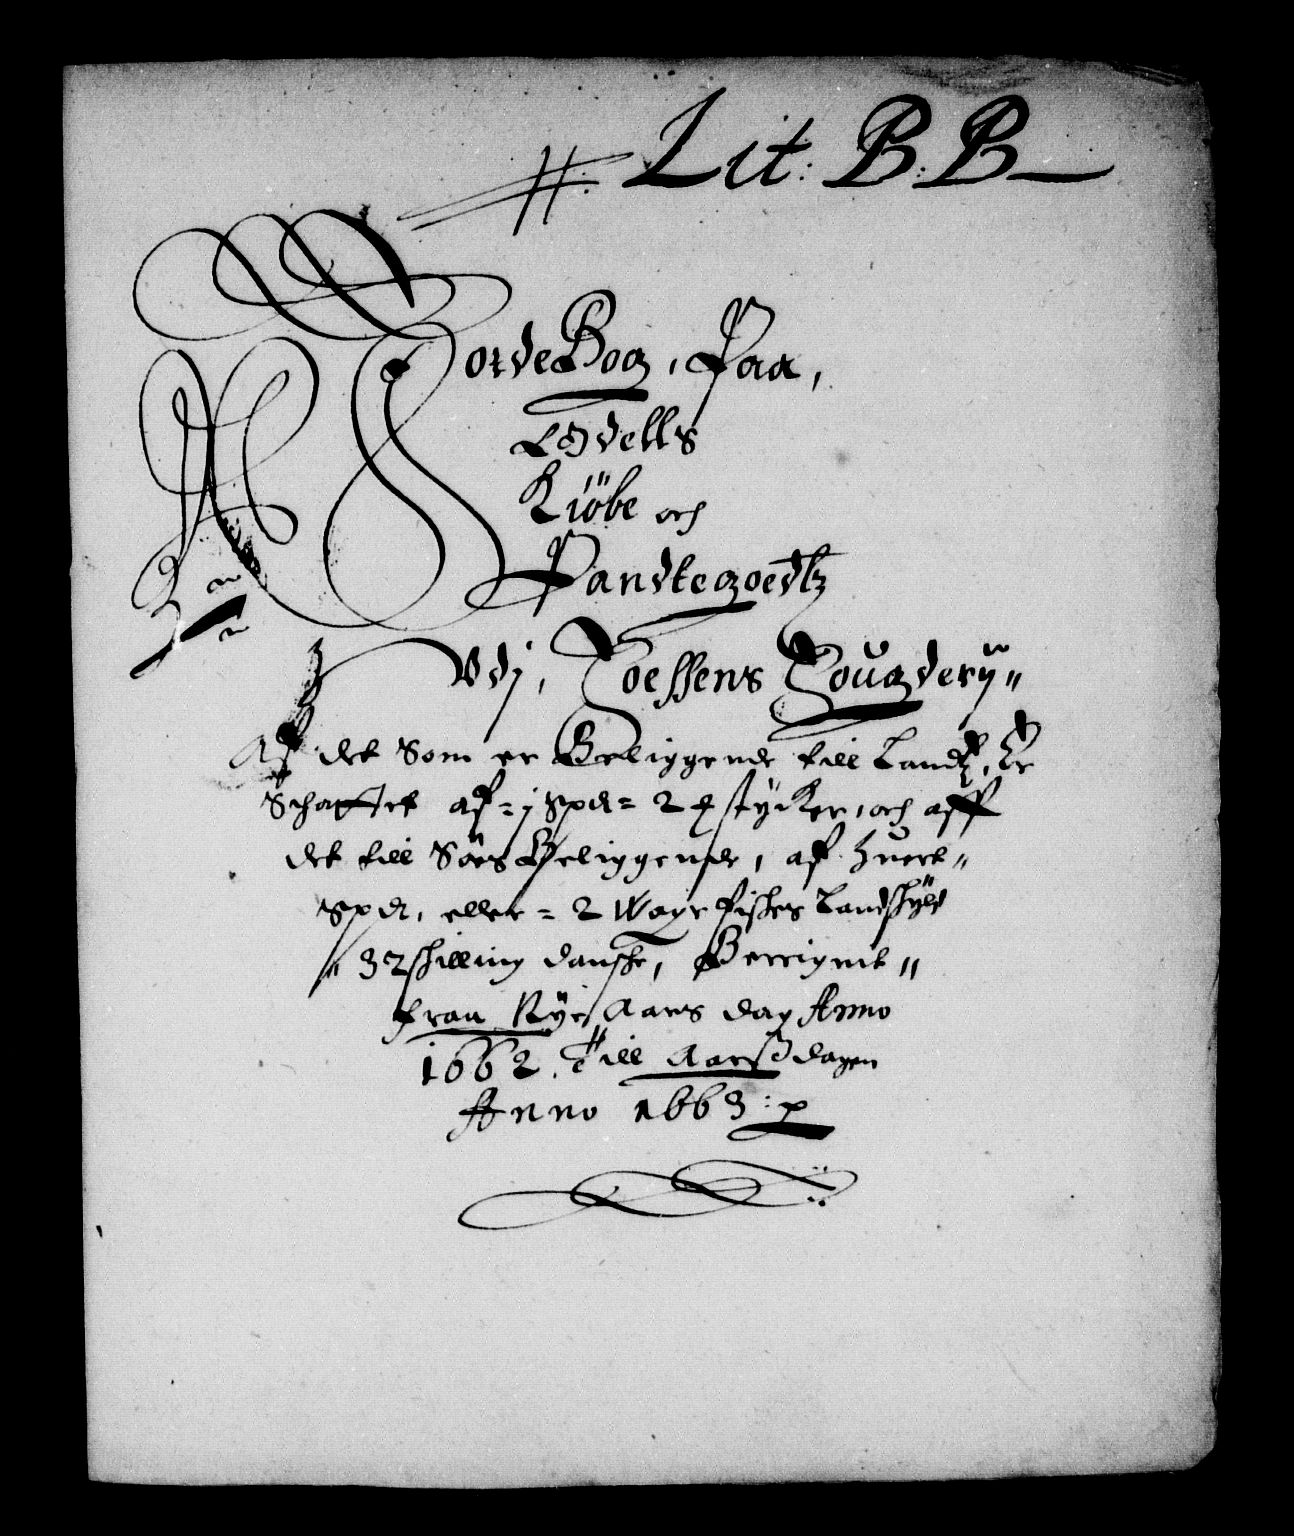 Lit: B: B
Jorde Bog, Paa,
Odells
Kiöbe och
Pandtegoedtz
Vdj, Foessens Fougderij
Af det Som er Beliggende till Landtz, Er
Schattet af = j Spdt = 2 stÿcker, och aff
det till Söes Beliggende, af huert
Spdt, eller = 2 Woge fiskes Landschÿld
32 schilling danske, Berignet
fraa Nÿe Aars dag Anno
1662. Till Aarsdagen
Anno 1663: